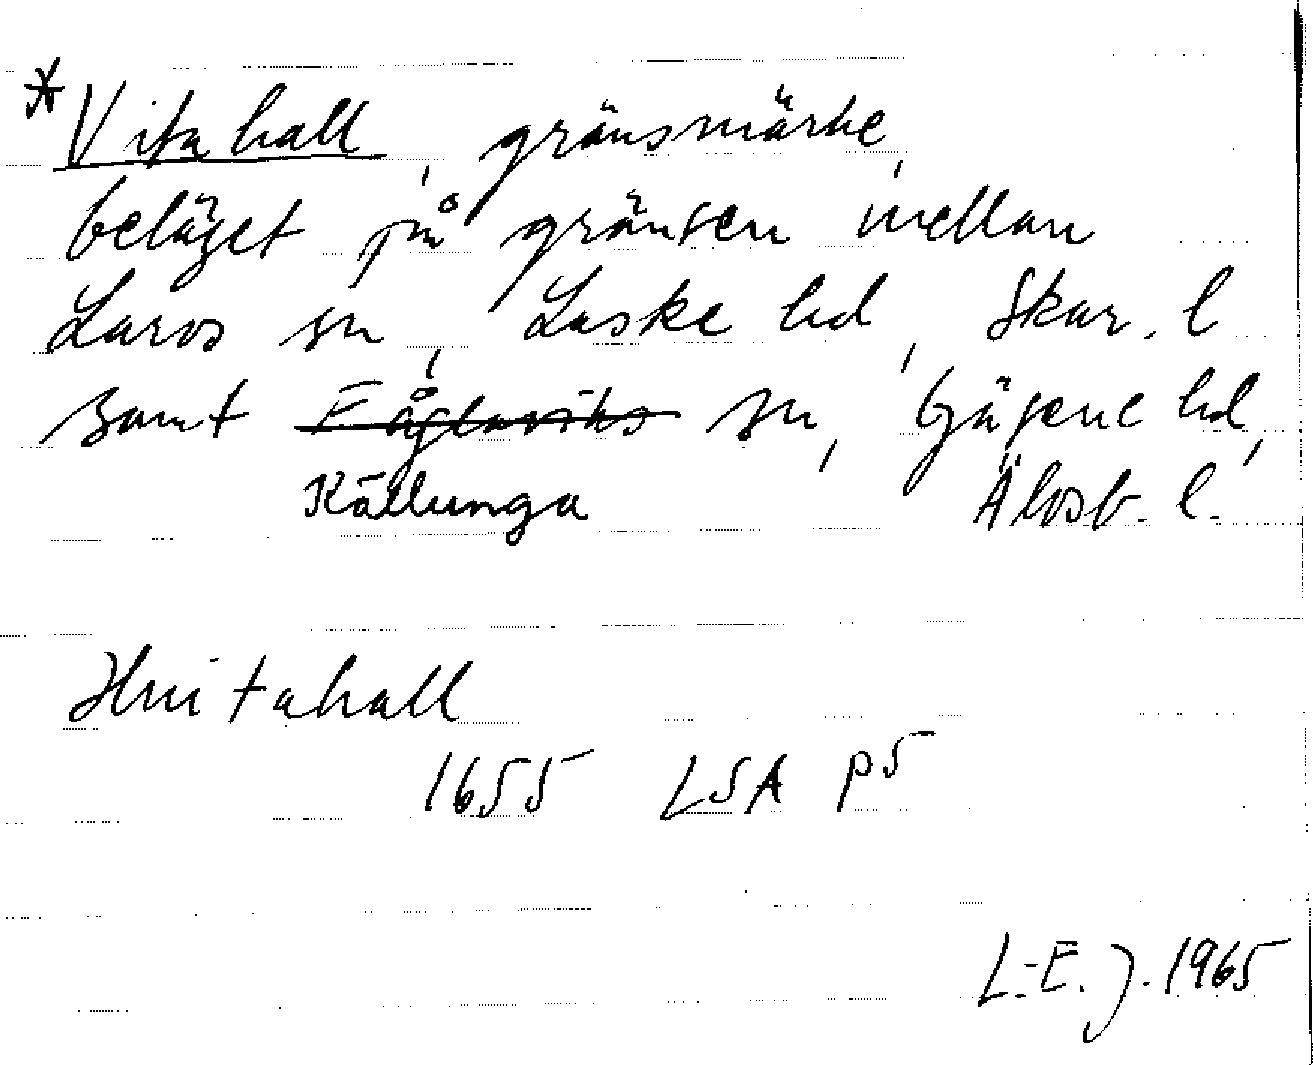 *Vitahall, gränsmärke,
beläget på gränsen mellan
Larvs sn, Laske hd, Skar. l
samt Fåglaviks sn, Gäsene hd,
Källunga Älvsb. l.
Hvitahall
1655 LSA P5
L.-E. J. 1965